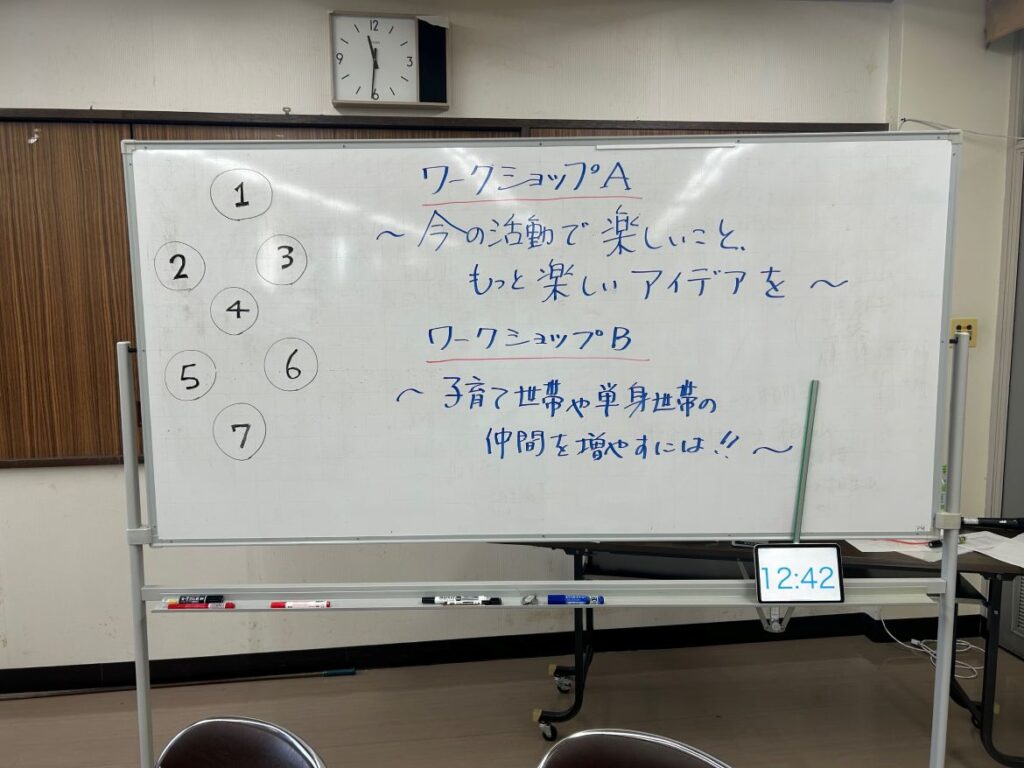 12
9
3
6
1
2
3
4
5
6
7
ワークショップA
～今の活動で楽しいこと、
もっと楽しいアイデアを～
ワークショップB
～子育て世帯や単身世帯の
仲間を増やすには!!～
12:42